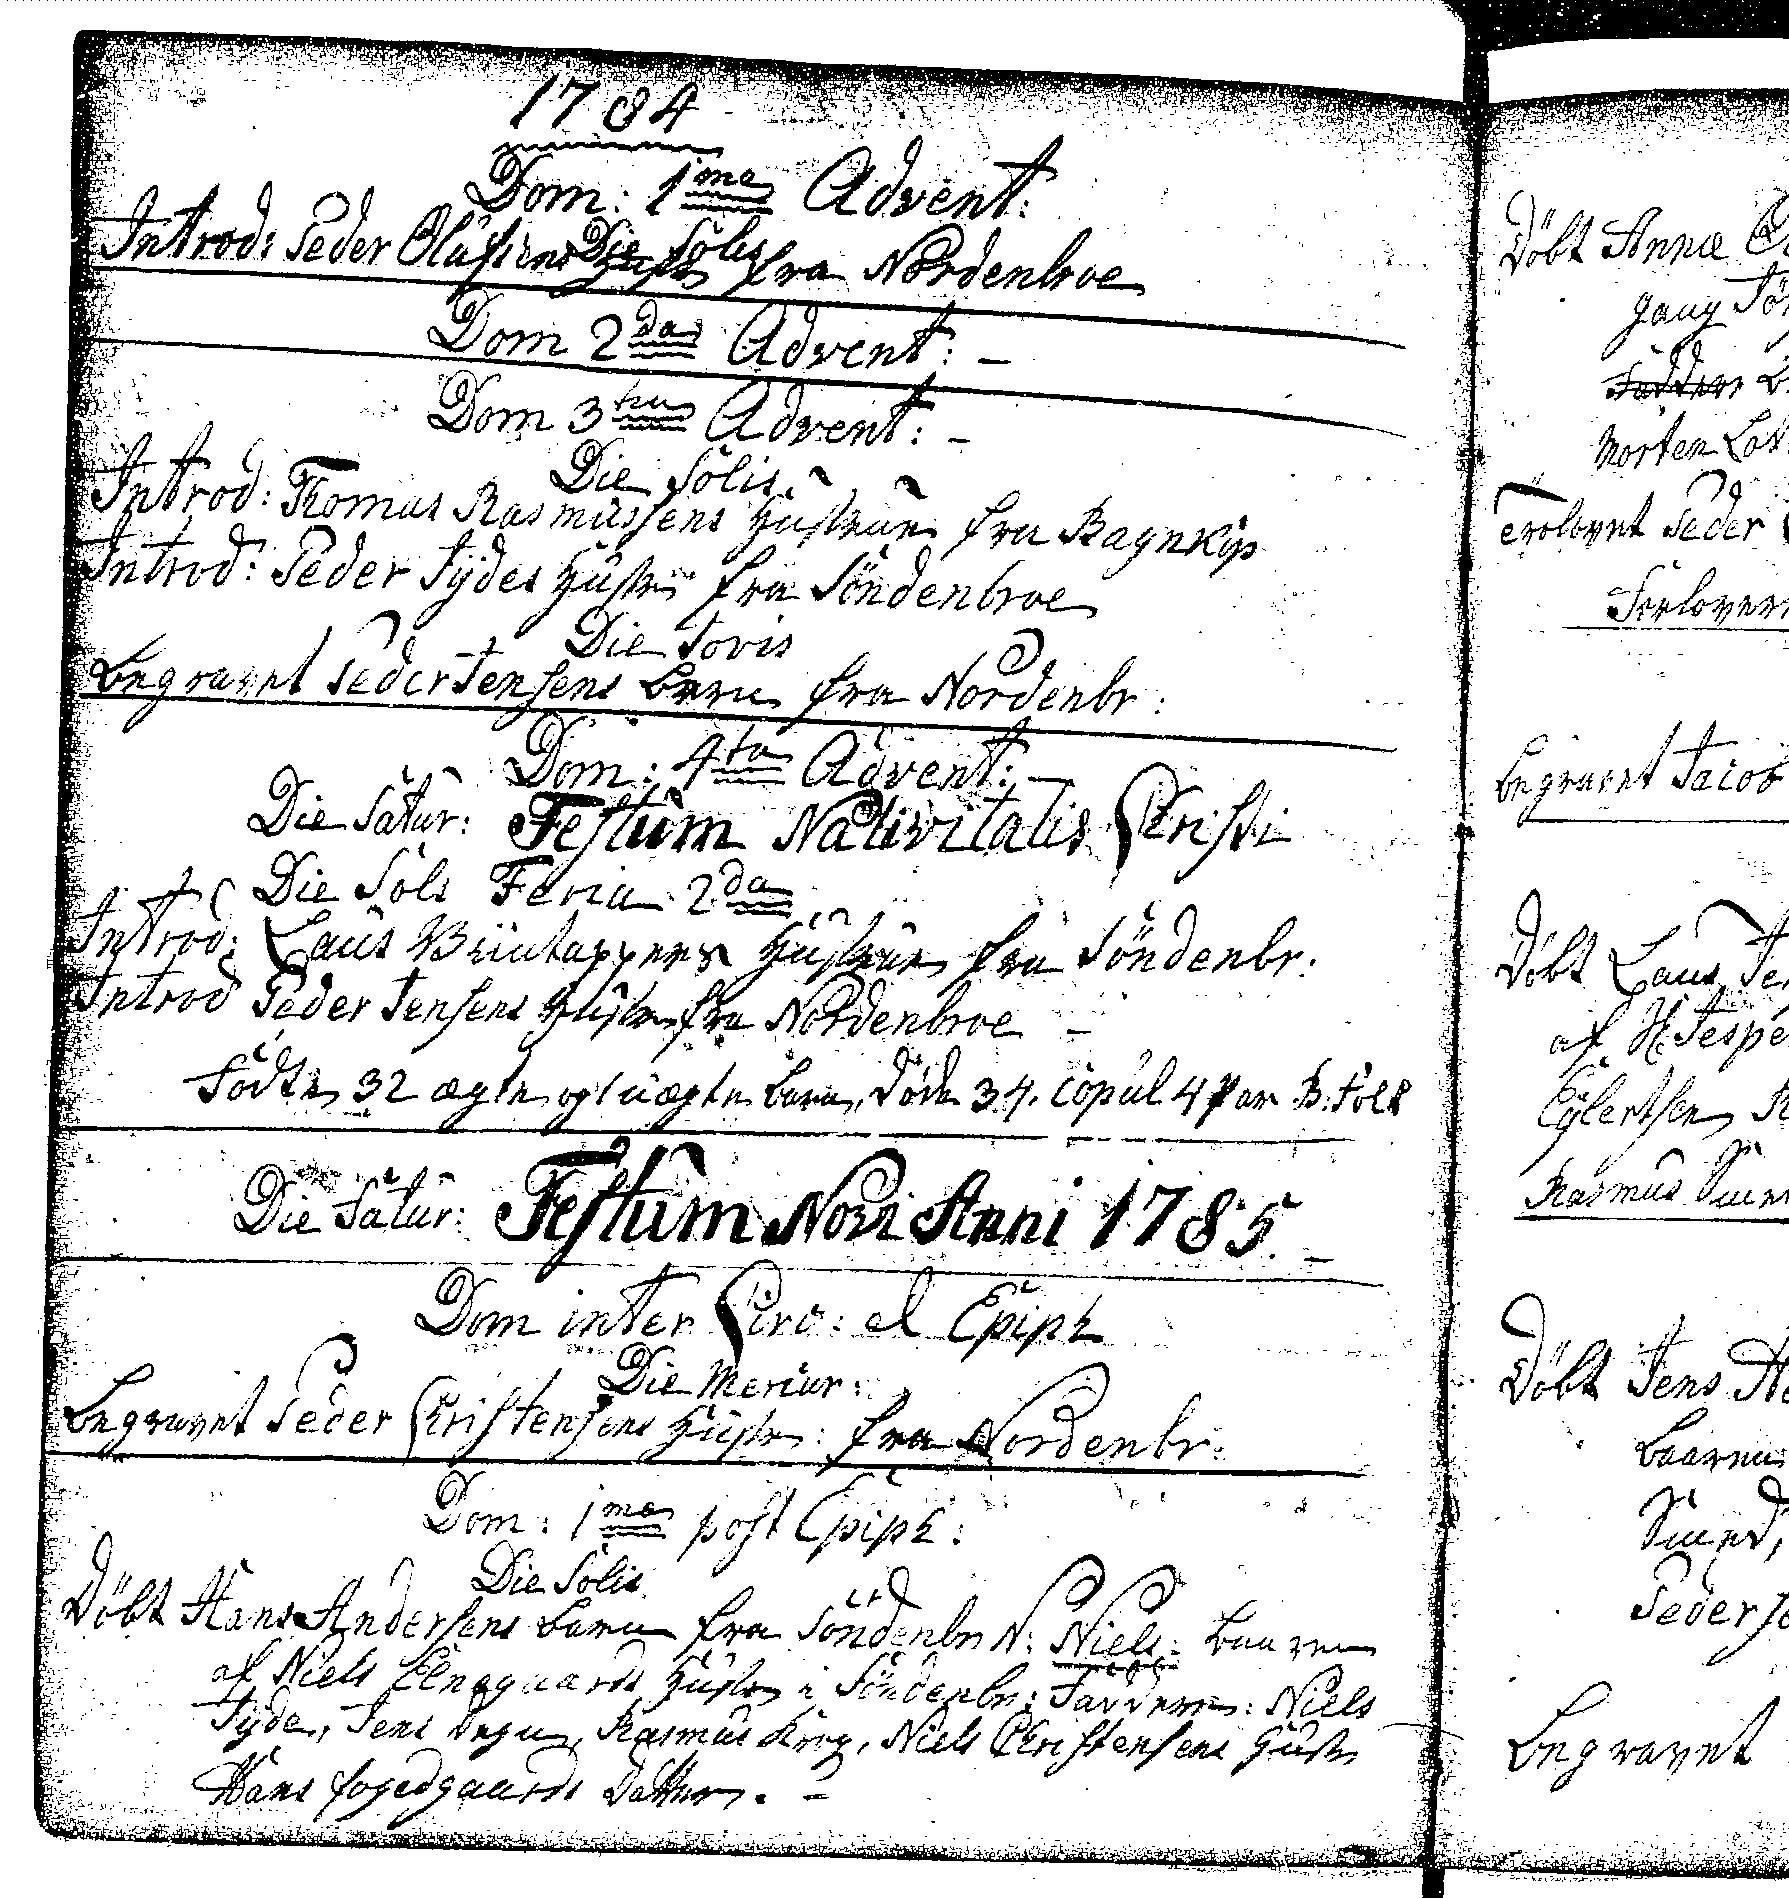 1784
Dom: 1ma Advent:
Die Solis
Introd: Peder Olufsens Hustr fra Nordenbroe
Dom 2da Advent: -
Dom 3tia Advent: -
Die Solis
Introd: Thomas Rasmussens Hustrue fra Bagnkop
Introd: Peder Tydes Hustr fra Söndenbroe
Die Jovis
Begravet Peder Jensens Barn fra Nordenbr:
Dom: 4ta Advent: -
Die Satur: Festum Nativitatis Christi
Die Sols Feria 2da
Introd: Laus Hustrue fra Söndenbr:
Introd Peder Jensens Hustr fra Nordenbroe -
Födte 32 ægte og 1 uægte Barn, Döde 34. Copul 4 Par B: Folk
Die Satur: Festum Novi Anni 1785. -
Dom inter Circ: et Epiph
Die Mercur:
Begravet Peder Christensens Hustr: fra Nordenbr:
Dom: 1ma post Epiph:
Die Solis
Döbt Hans Andersens Barn fra Söndenbr N: Niels. Baaren
af Niels Hustr i Söndenbr: Faddere: Niels
Tyde, Jens Degn, Rasmus Krog, Niels Christensens Hustr
Hans Fogedgaards Datter. -
Döbt Anna
gaug
Faddere
Morten
Trolovet Peder
Forlover
Begravet Jacob
Döbt Laus
af H: Jespe
Eylertsen
Rasmus
Döbt Jens
Baaren
Smed,
Peders
Begravet